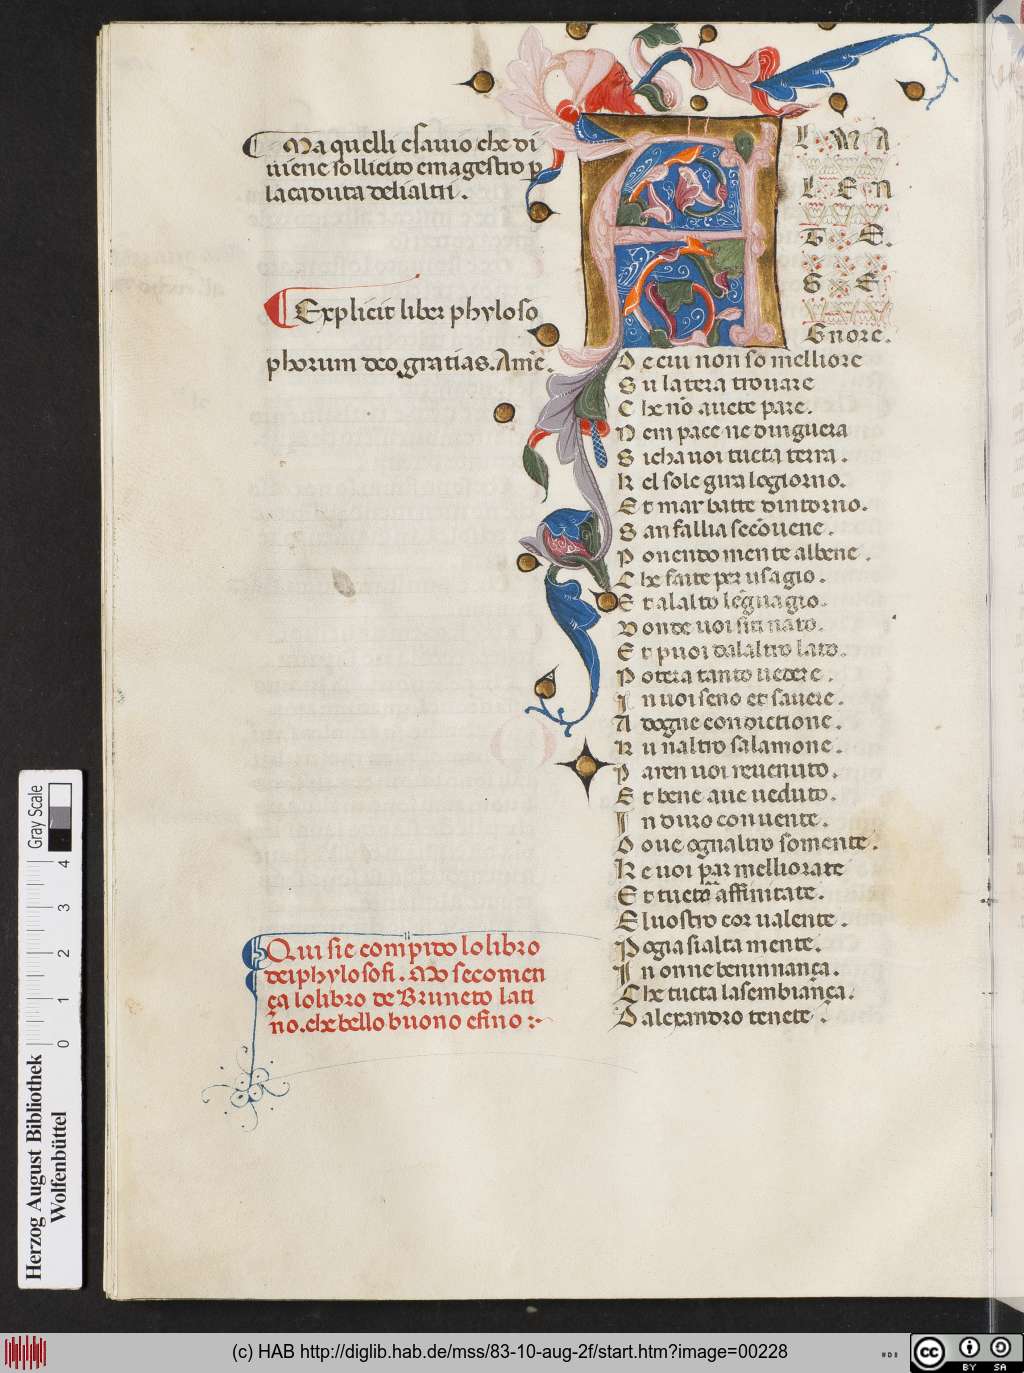 Ma quelli e savio che di
uiene sollicito e magestro p
la caduta deli altri.
Explicit liber phyloso
phorum deo gratias. Amē.
Qui si e compito lo libro
dei phylosofi. Mo se comen
ça lo libro de Bruneto lati
no. che bello buono e fino :~
A L
L E
G
S E
Gnore.
D e cui non so melliore
S u la tera trouare
C he nō auete pare.
N e m pace ne din guera
S i cha uoi tucta terra.
K el sole gira lo giorno.
E t mar batte dintorno.
S an fallia se cōuene.
P onendo mente al bene.
C he faite per usagio.
E t al alto legnagio.
D onde uoi siti nato.
E t puoi dal altro lato.
P otera tanto uedere.
I n uoi seno et sauere.
A dogne condictione.
K u naltro salamone.
P aren uoi reuenuto.
E t bene aue ueduto.
I n duro conuente.
D oue ognaltro somente.
K e uoi par melliorate
E t tucto affinitate.
E l uostro cor ualente.
P ogia si alta mente.
I n onne beninnança.
C he tucta la sembiança.
D alexandro tenete.
Gray Scale
0 1 2 3 4
Herzog August Bibliothek
Wolfenbüttel
(c) HAB http://diglib.hab.de/mss/83-10-aug-2f/start.htm?image=00228
cc BY SA